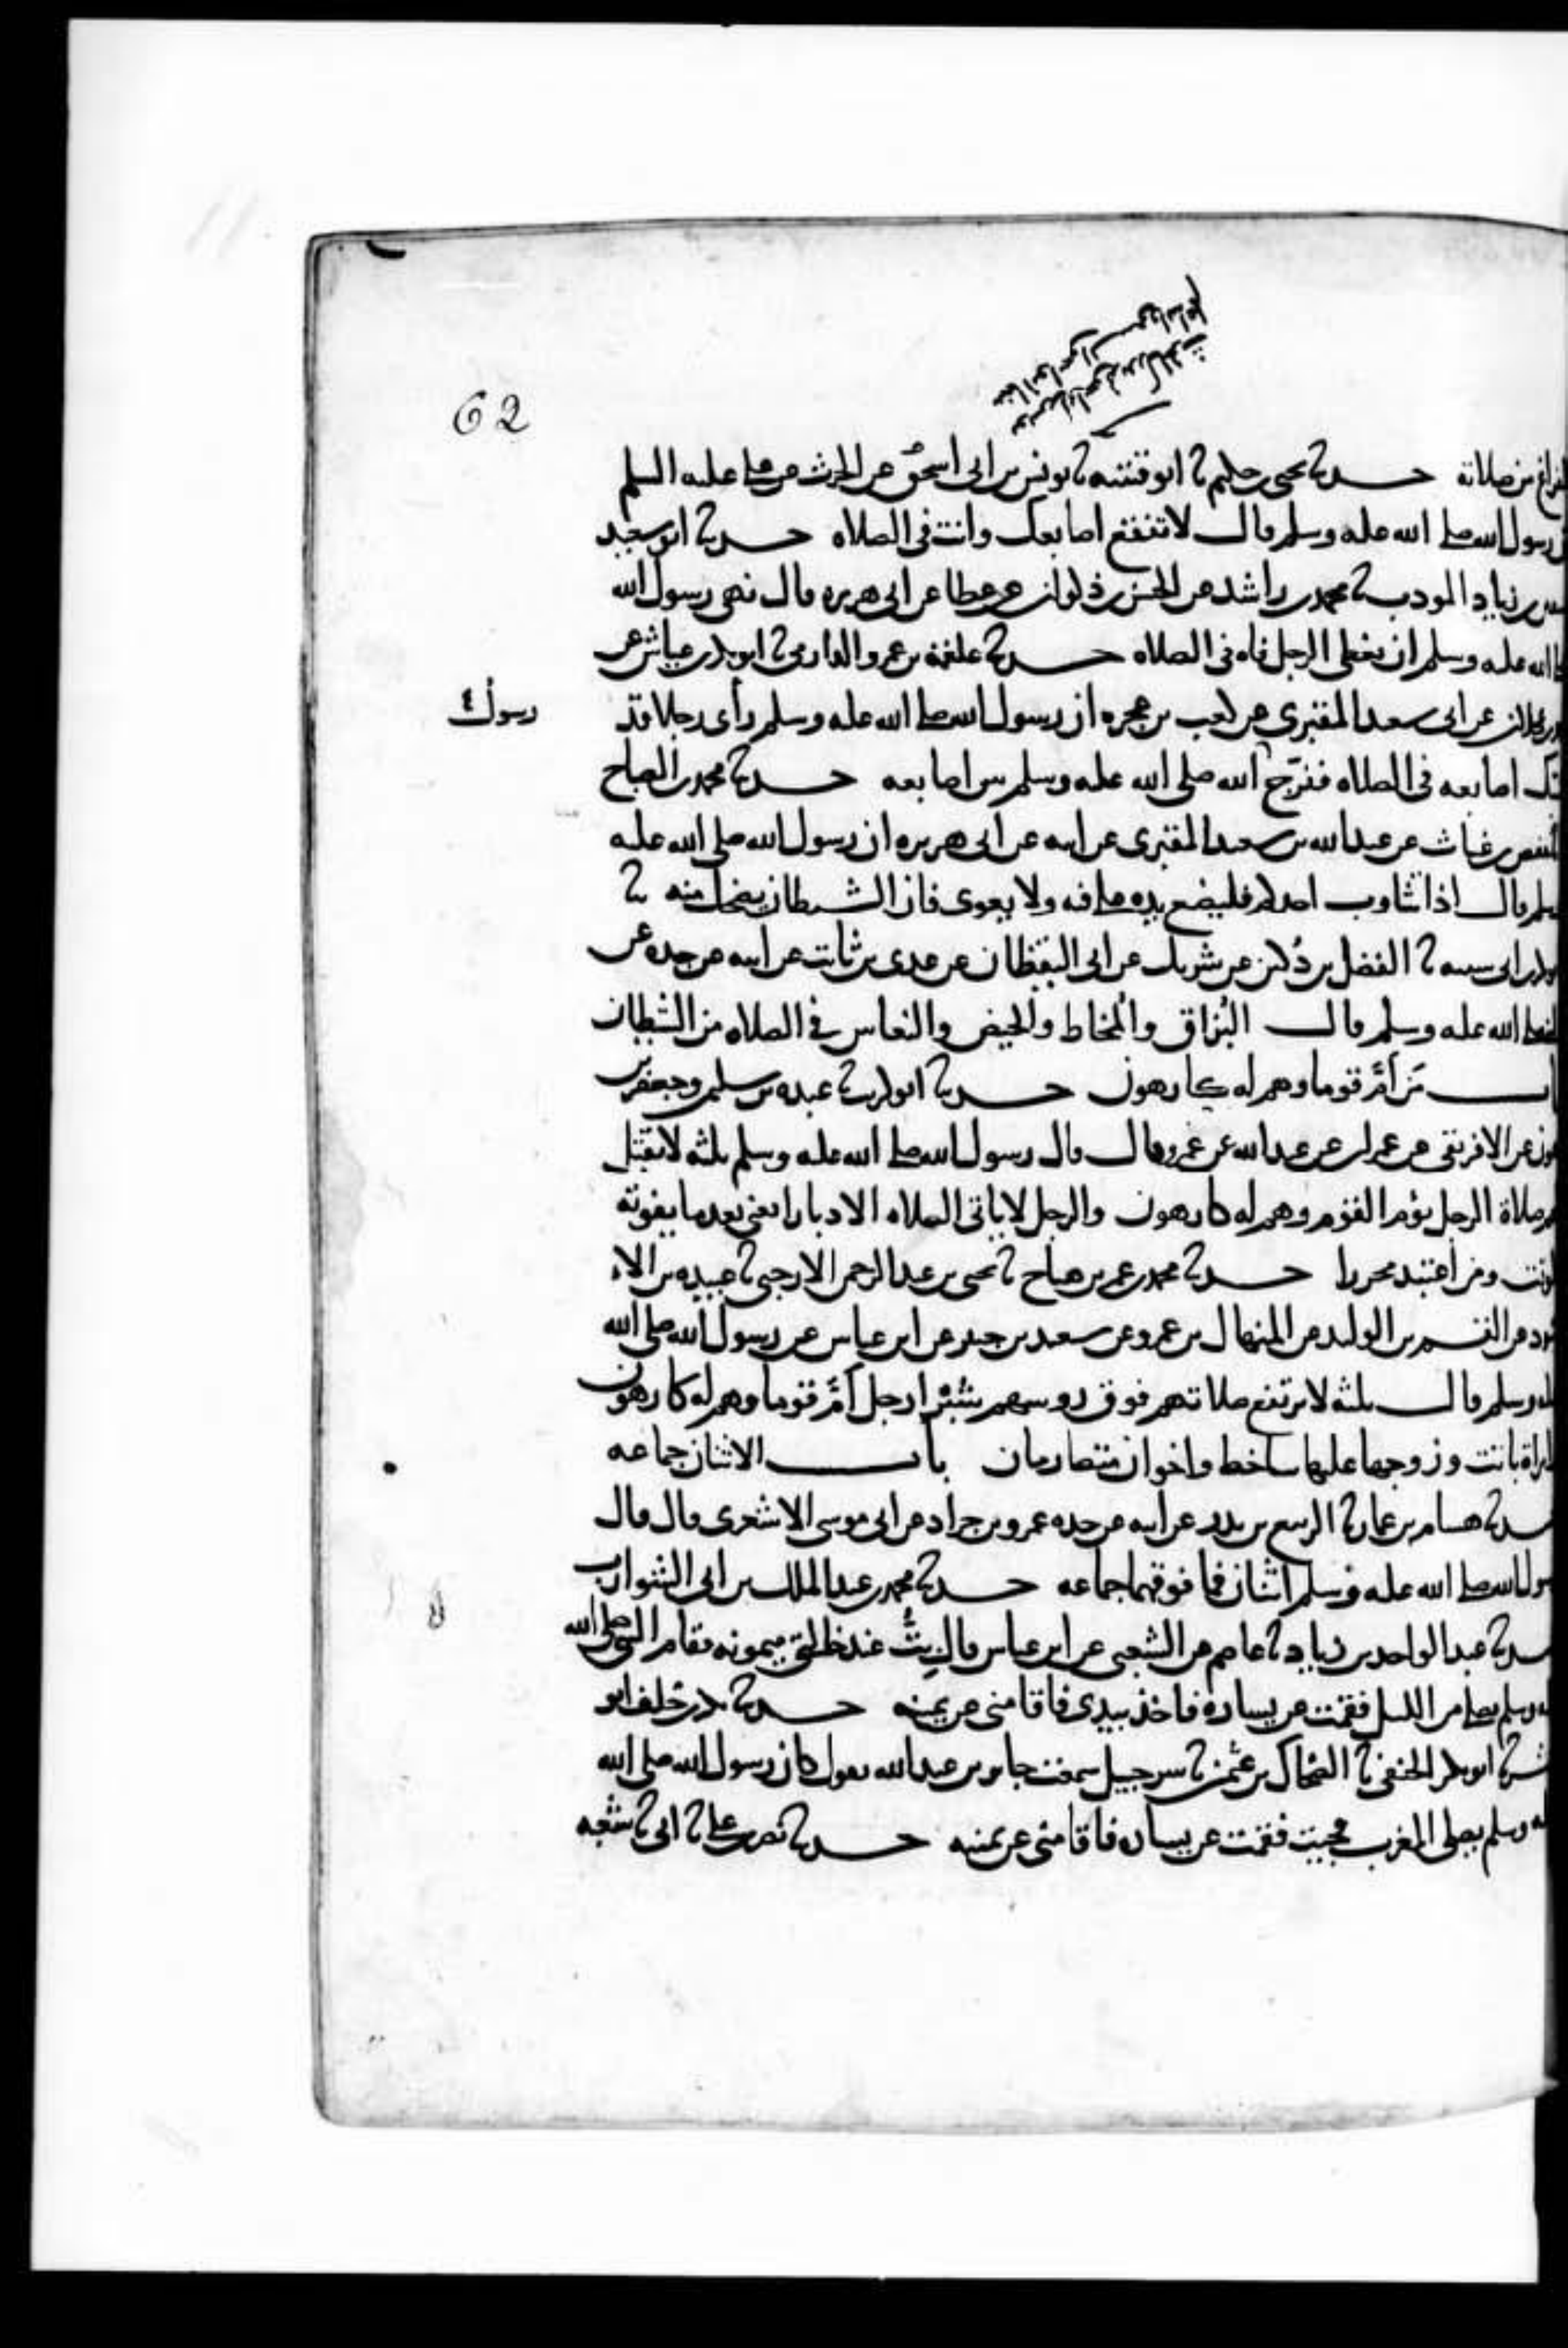 62
الفراغ من صلاته حدثنا يحيى بن حكيم ثنا ابو قتيبة ثنا يونس بن ابى اسحق عن الحرث عن على عليه السلم
ان رسول الله صلى الله عليه وسلم قال لا تفقع اصابعك وانت فى الصلاه حدثنا ابو سعيد
بن زياد المودب ثنا محمد بن راشد عن الحسن بن ذكوان عن عطا عن ابى هريره قال نهى رسول الله
الله عليه وسلم ان يغطى الرجل فاه فى الصلاه حدثنا علقمة بن عمرو الدارمى ثنا ابو بكر بن عياش عن
عجلان عن ابى سعد المقبري عن كعب بن عجره ان رسول الله صلى الله عليه وسلم رأى رجلا قد
شبك اصابعه فى الصلاه ففرّج الله صلى الله عليه وسلم بين اصابعه حدثنا محمد بن الصباح
رسول
حفص بن غياث عن عبد الله بن سعيد المقبرى عن ابيه عن ابى هريره ان رسول الله صلى الله عليه
وسلم قال اذا تثاوب احدكم فليضع يده على فيه ولا يعوى فان الشيطان يضحك منه ثنا
ابو بكر بن ابى شيبه ثنا الفضل بن دُكين عن شريك عن ابى اليقظان عن عدى بن ثابت عن ابيه عن جده عن
الله عليه وسلم قال البُزاق والمُخاط والحيض والنعاس في الصلاه من الشيطان
باب مَن أمَّ قوما وهم له كارهون حدثنا ابو كريب ثنا عبده بن سليمن وجعفر بن
عون عن الافريقى عن عمران عن عبد الله عن عمرو قال قال رسول الله صلى الله عليه وسلم ثلثه لا تقبل
لهم صلاة الرجل يؤم القوم وهم له كارهون والرجل لا ياتى الصلاه الا دبارا يعنى بعد ما يفوته
الوقت ومن اعتبد محررا حدثنا محمد بن عمر بن هياج ثنا يحيى بن عبد الرحمن الارحبى ثنا عبيده بن الا
سود عن القسم بن الوليد عن المنهال بن عمرو عن سعيد بن جبير عن ابن عباس عن رسول الله صلى الله
عليه وسلم قال ثلثه لا ترتفع صلاتهم فوق روسهم شبرا رجل أمَّ قوما وهم له كارهون
وامراة باتت وزوجها عليها ساخط واخوان متصارمان باب الاثنان جماعه
حدثنا هشام بن عمار ثنا الربيع بن بدر عن ابيه عن جده عمرو بن جراد عن ابى موسى الاشعرى قال قال
رسول الله صلى الله عليه وسلم اثنان فما فوقهما جماعه حدثنا محمد بن عبد الملك بن ابى الشوارب
حدثنا عبد الواحد بن زياد ثنا عاصم عن الشعبى عن ابن عباس قال بِتُّ عند خالتى ميمونه فقام النبى صلى الله
عليه وسلم يصلى من الليل فقمت عن يساره فاخذ بيدى فاقامنى عن يمينه حدثنا بكر بن خلف ابو
بشر ثنا ابو بكر الحنفى ثنا الضحاك بن عثمن ثنا شرحبيل سمعت جابر بن عبد الله يقول كان رسول الله صلى الله
عليه وسلم يصلى المغرب فجيت فقمت عن يساره فاقامنى عن يمينه حدثنا نصر بن على ثنا ابى ثنا شعبه